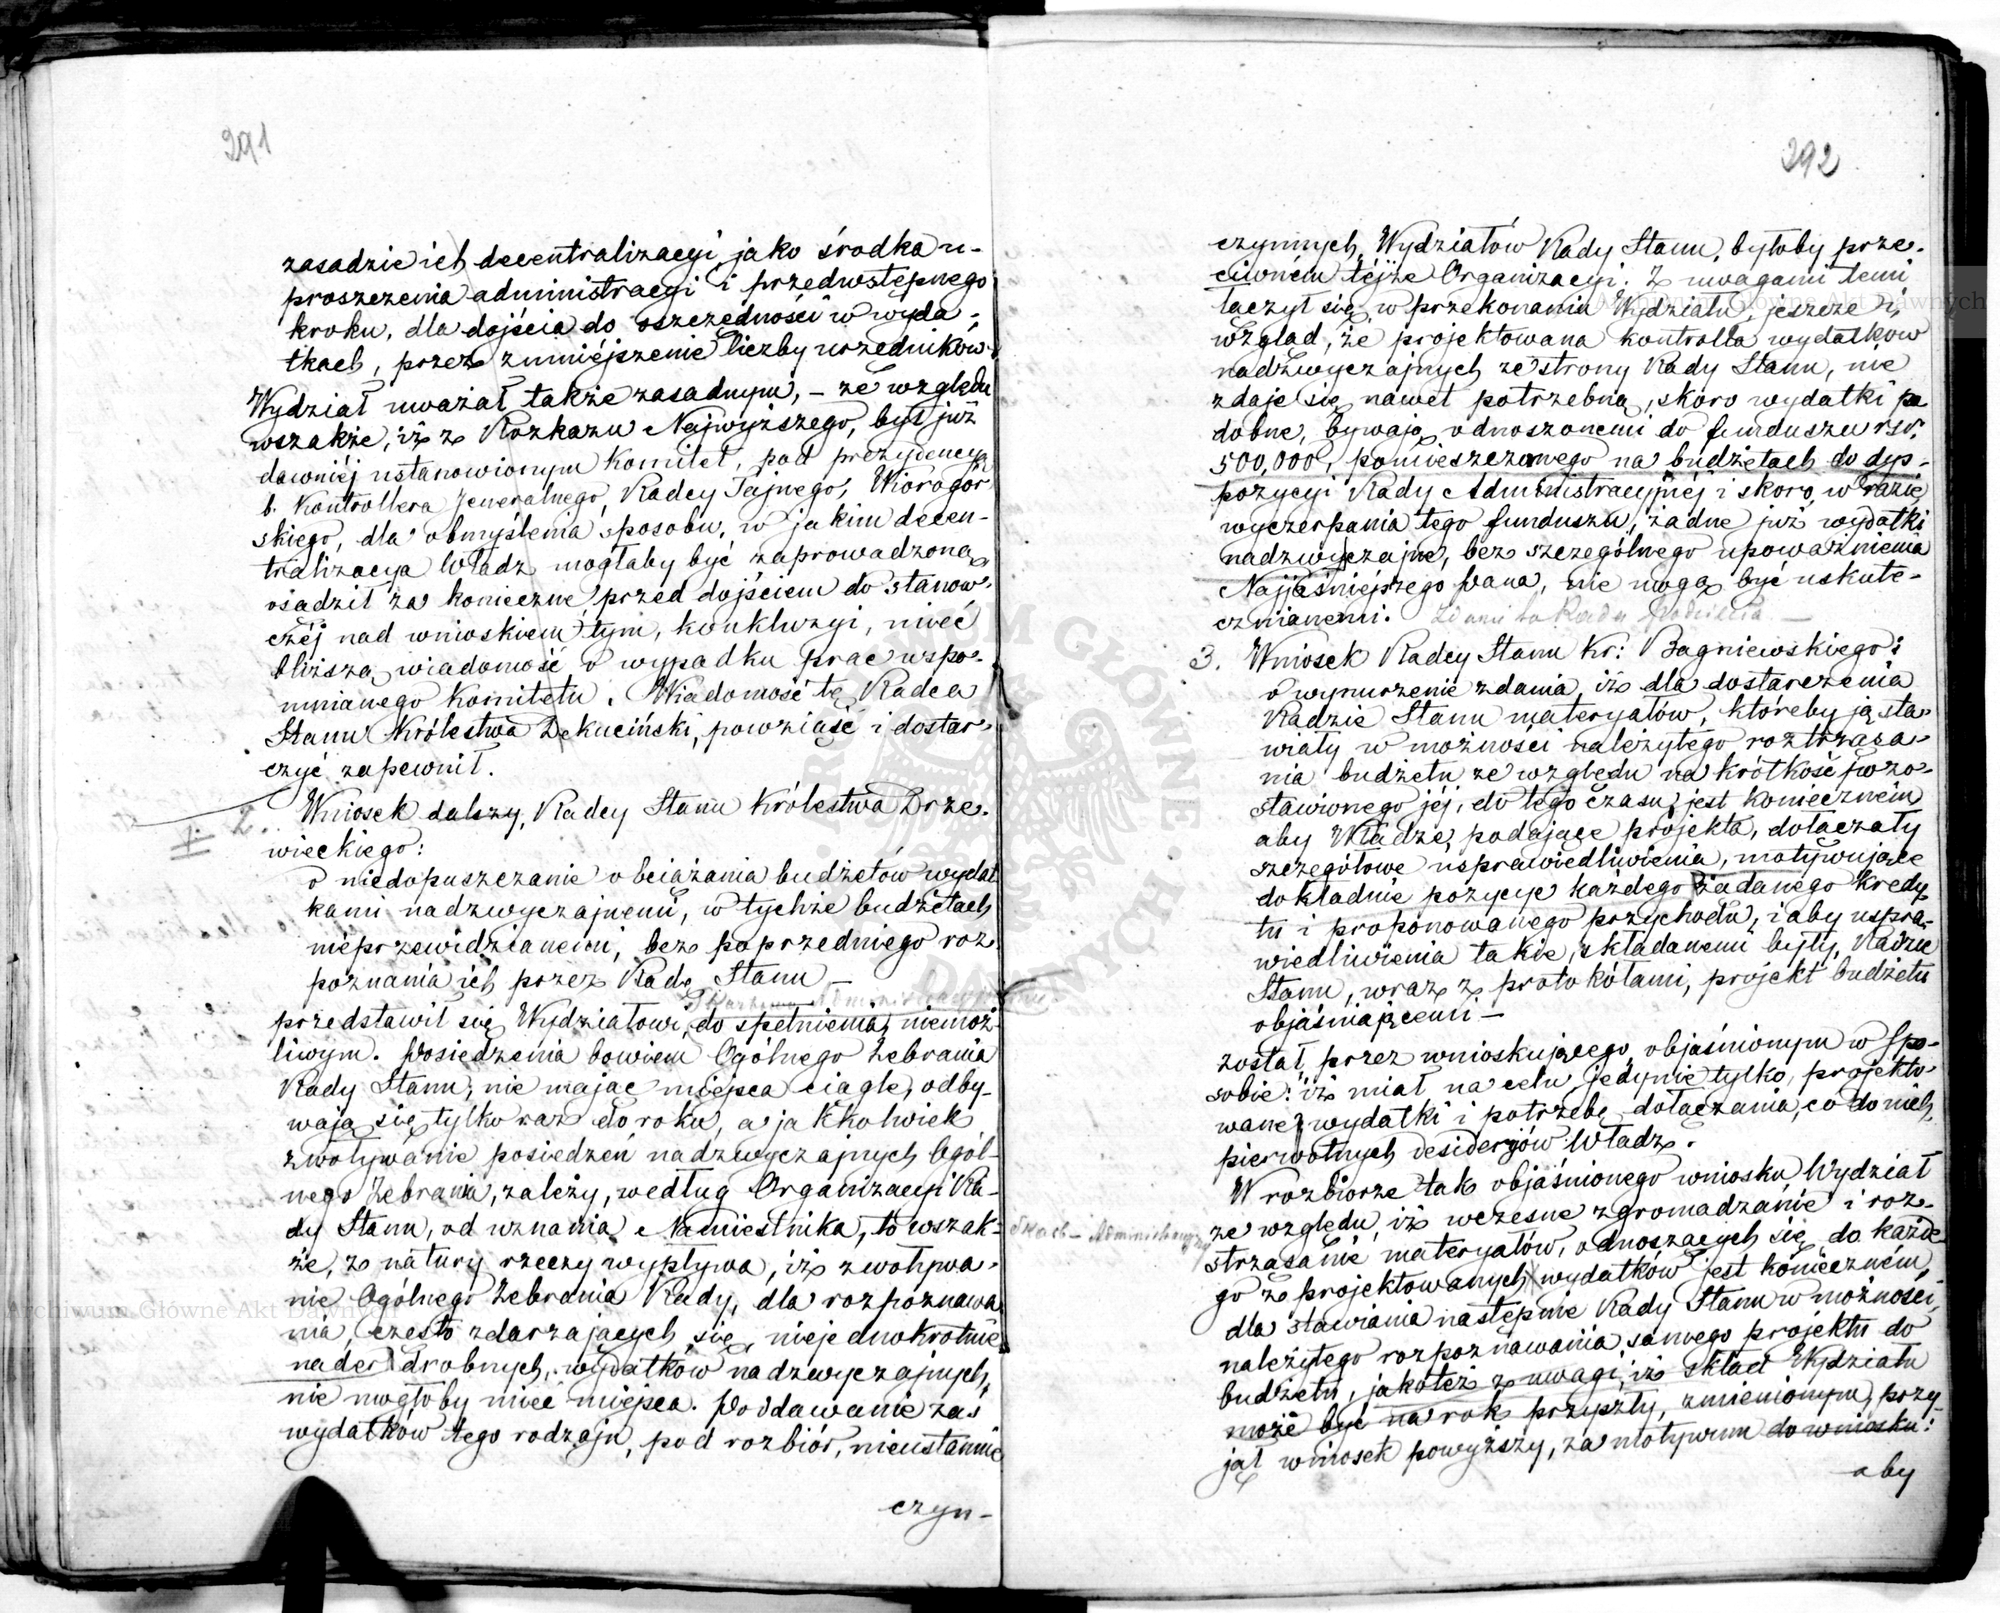 291
zasadzie ich decentralizacyi, jako środka u-
proszczenia administracyi i przedwstępnego
kroku, dla dojścia do oszczędności w wyda-
tkach, przez zmniéjszenie liczby urzędników.
Wydział uważał także zasadnym, – ze względu
wszakże, iż z Rozkazu Najwyższego, był już
dawniéj ustanowionym Komitet, pod prezydencyą
b. Kontrollera Jeneralnego, Radcy Tajnego,
skiego, dla obmyślenia sposobu, w jakim decen-
tralizacya Władz mogłaby być zaprowadzoną
osądził za konieczne, przed dojściem do stanow-
czéj nad wnioskiem tym, konkluzyi, mieć
bliższą wiadomość o wypadku prac wspo-
mnianego Komitetu. Wiadomość tę Radca
Stanu Królestwa Dekuciński, powziąść i dostar-
czyć zapewnił.
2. Wniosek dalszy, Radcy Stanu Królestwa Drze-
wieckiego:
o niedopuszczanie obciążania budżetów wydat
kami nadzwyczajnemi, w tychże budżetach
nieprzewidzianemi, bez poprzedniego roz-
poznania ich przez Radę Stanu –
przedstawił się Wydziałowi, do spełnienia, niemoż-
liwym. Posiedzenia bowiem Ogólnego Zebrania
Rady Stanu, nie mając miejsca ciągle, odby-
wają się tylko raz do roku, a jakkolwiek
zwoływanie posiedzeń nadzwyczajnych Ogól-
nego Zebrania, zależy, według Organizacyi Ra-
dy Stanu, od uznania Namiestnika, to wszak-
że, z natury rzeczy wypływa, iż zwoływa-
nie Ogólnego Zebrania Rady, dla rozpoznawa
nia, często zdarzających się, niejednokrotnie
nader drobnych, wydatków nadzwyczajnych,
nie mogłoby mieć miejsca. Poddawanie zaś
wydatków tego rodzaju, pod rozbiór, nieustannie
czyn-
292
czynnych, Wydziałów Rady Stanu, byłoby prze-
ciwném téjże Organizacyi. Z uwagami temi
łączył się, w przekonaniu Wydziału, jeszcze i
wzgląd, że projektowana kontrolla wydatków
nadzwyczajnych ze strony Rady Stanu, nie
zdaje się nawet potrzebną, skoro wydatki po
dobne, bywają odnoszonemi do funduszu rsr.
500,000, pomieszczonego na budżetach do dys-
pozycyi Rady Administracyjnéj i skoro, w razie
wyczerpania tego funduszu, żadne już wydatki
nadzwyczajne, bez szczególnego upoważnienia
Najjaśniejszego Pana, nie mogą być uskute-
cznianemi.
3. Wniosek Radcy Stanu Kr: Bagniewskiego:
o wynurzenie zdania, iż dla dostarczenia
Radzie Stanu materyałów, któreby ją sta-
wiały w możności należytego roztrząsa-
nia budżetu ze względu na krótkość pozo-
stawionego jéj, do tego czasu, jest konieczném
aby Władze, podające projekta, dołączały
szczegółowe usprawiedliwienia, motywujące
dokładnie pozycye każdego żądanego kredy
tu i proponowanego przychodu, i aby uspra-
wiedliwienia takie, składanemi były, Radzie
Stanu, wraz z protokółami, projekt budżetu
objaśniającemi –
został, przez wnioskującego, objaśnionym w spo-
sobie: iż miał na celu, jedynie tylko, projekto-
wane wydatki i potrzebę dołączania, co do nich,
pierwotnych desideryów Władz.
W rozbiorze tak objaśnionego wniosku, Wydział
ze względu, iż wczesne zgromadzanie i roz-
strząsanie materyałów, odnoszących się do każde
go z projektowanych wydatków jest konieczném,
dla stawiania następnie Rady Stanu w możności,
należytego rozpoznawania samego projektu do
budżetu, jakoteż z uwagi, iż skład Wydziału
może być na rok przyszły, zmienionym, przy-
jął wniosek powyższy, za motywum do wniosku:
aby